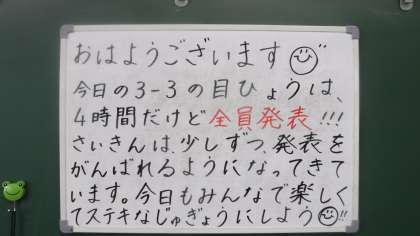 おはようございます
今日の3-3の目ひょうは、
4時間だけど全員発表!!!
さいきんは、少しずつ、発表を
がんばれるようになってきて
います。今日もみんなで楽しく
てステキなじゅぎょうにしよう!!